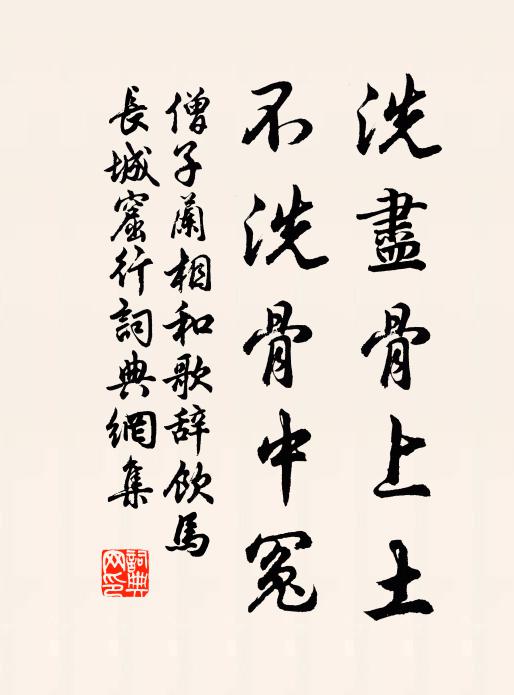 洗盡骨上土
不洗骨中冤
僧子蘭相和歌辞飲馬
長城窟行詞典網集
詞典
网印